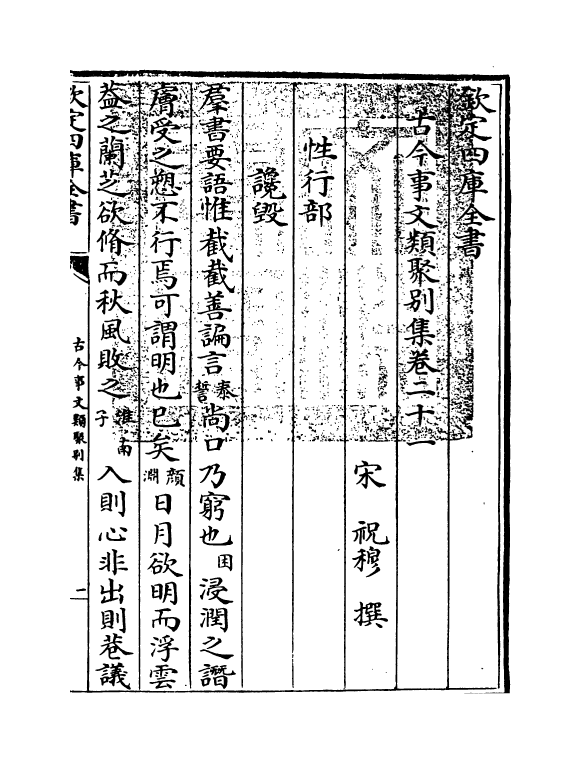 欽定四庫全書
古今事文類聚别集卷二十一
宋 祝穆 撰
性行部
讒毀
羣書要語惟截截善諞言秦誓尚口乃窮也困浸潤之譖
膚受之愬不行焉可謂明也已矣顔淵日月欲明而浮雲
葢之蘭芝欲脩而秋風敗之淮南子入則心非出則巷議
欽定四庫全書
古今事文類聚别集
一